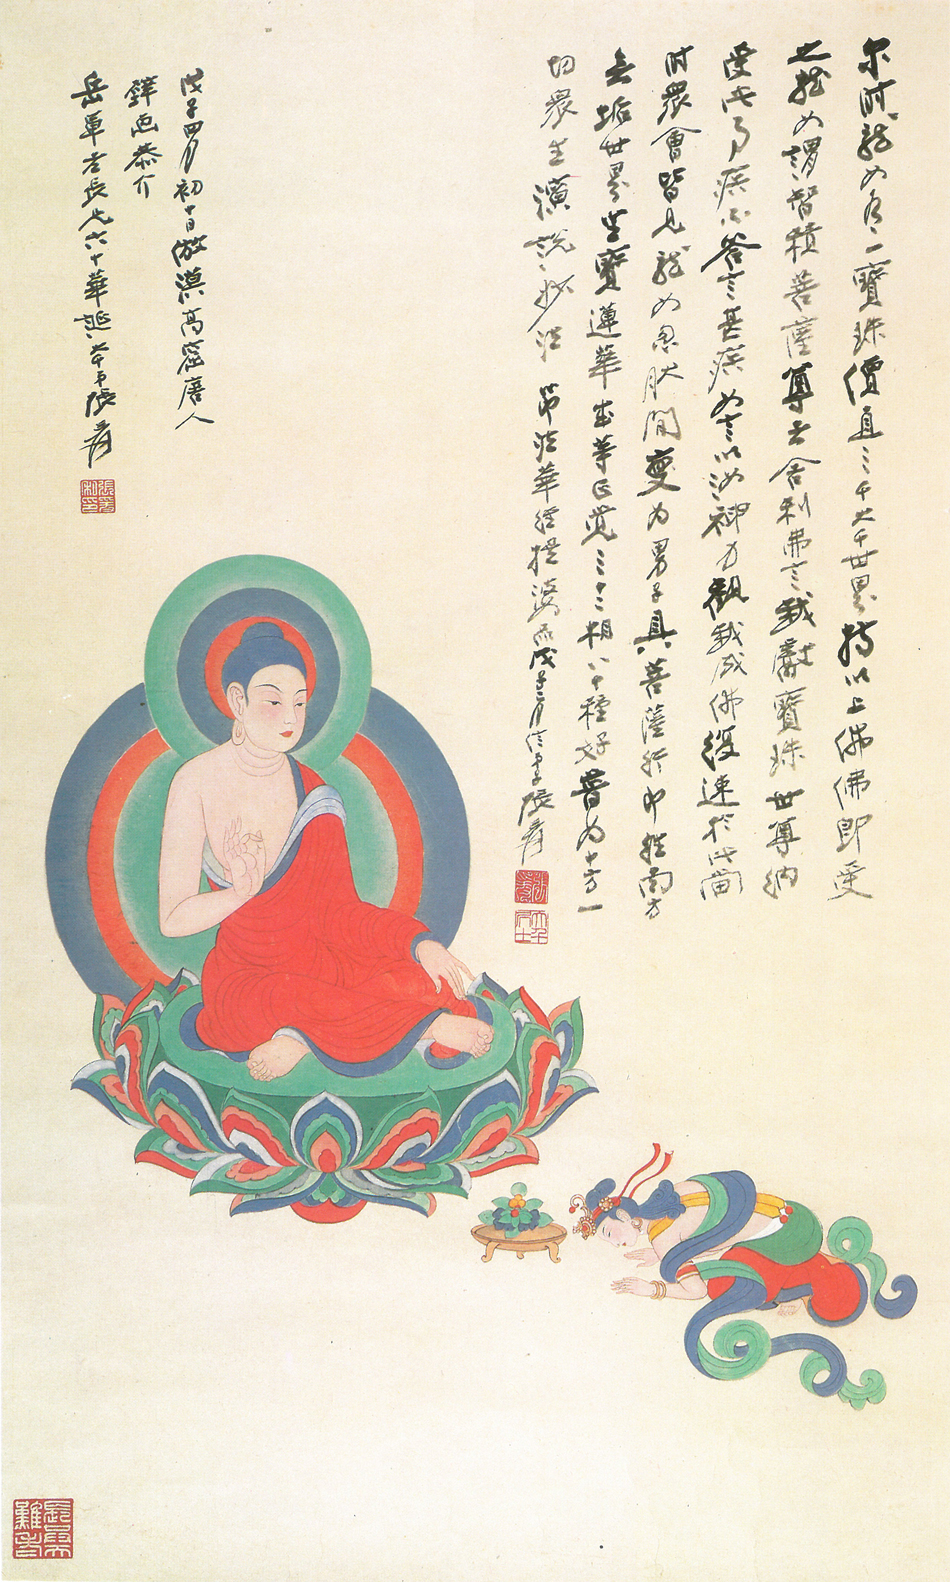 尔时龍女有一寶珠價直三千大千世界持以上佛佛即受
之龍女謂智積菩薩尊者舍利弗言我獻寶珠世尊納
受此事疾不答言甚疾女言以汝神力觀我成佛復速於此當
时眾會皆見龍女忽然間變为男子具菩薩行即往南方
無垢世界坐寶蓮華成等正覺三十二相八十種好普为十方一
切眾生演說妙法 節法華經提婆品 戊子二月信弟子張爰
張爰
大千居士
戊子四月初十日倣漠高窟唐人
壁画恭介
岳軍老長兄六十華誕 大千弟張爰